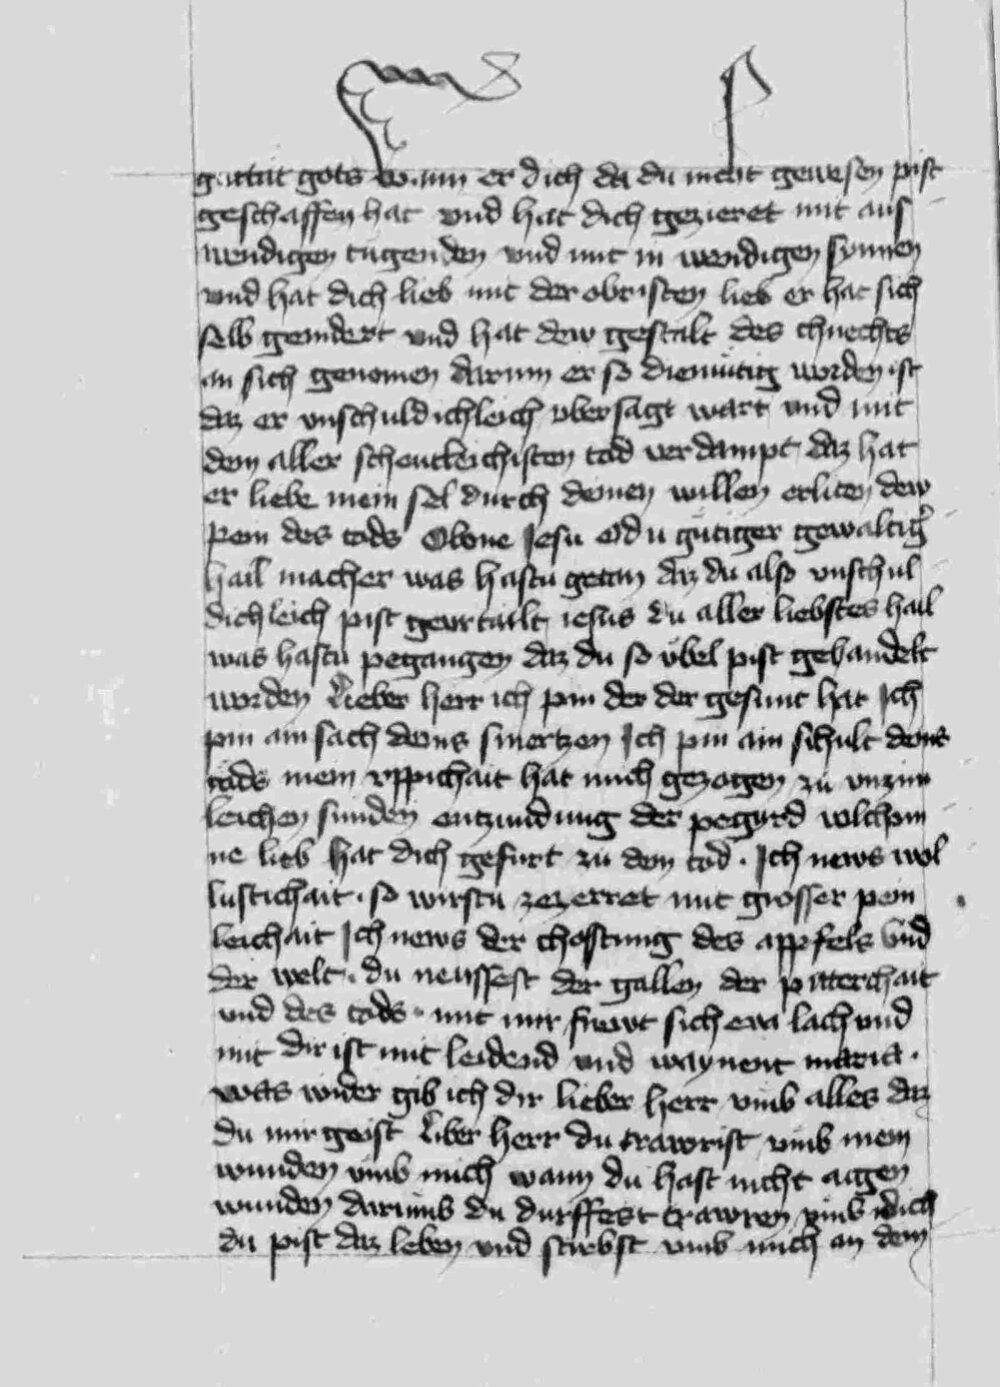 guttat gots wann er dich da du nicht gewesen pist
geschaffen hat vnd hat dich gezieret mit aus
wendigen tugenden vnd mit in wendigen synnen
vnd hat dich lieb mit der obristen lieb er hat sich
selb gemdert vnd hat dew gestalt des chnechts
an sich genomen darum er so diemütig worden ist
daz er vnschuldichleich vbersagt wart vnd mit
dem aller schentleichisten tod verdampt daz hat
er liebe mein sel durch deinen willen erliten dew
pein des tods O Jesu O du gütiger gewaltig
hail macher was hastu getan daz du also vnschul
dichleich pist geurtailt iesus du aller liebstes hail
was hastu pegangen daz du so übel pist gehandelt
worden Lieber herr ich pin der der gesunt hat Ich
pin ain sach deins smertzen Ich pin ain schult deins
tods mein vppichait hat mich gezogen zu vnzim
leichen sunden entzundung der pegyrd welchem
ne lieb hat dich gefurt zu dem tod . Ich news wol
lustichait . so wirstu zezerret mit grosser pein
leichait Ich news der chostung des appfels vnd
der welt . du neussest der gallen der pitterchait
vnd des tods . mit mir frewt sich eva lach vnd
mit dir ist mit leidend vnd waynent maria .
was wider gib ich dir lieber herr vmb alles daz
du mir geist Liber herr du trawrist vmb mein
wunden vmb mich wann du hast nicht aigen
wunden darumb du durffest trawren vmb dich
du pist daz leben vnd stirbst vmb mich an dem